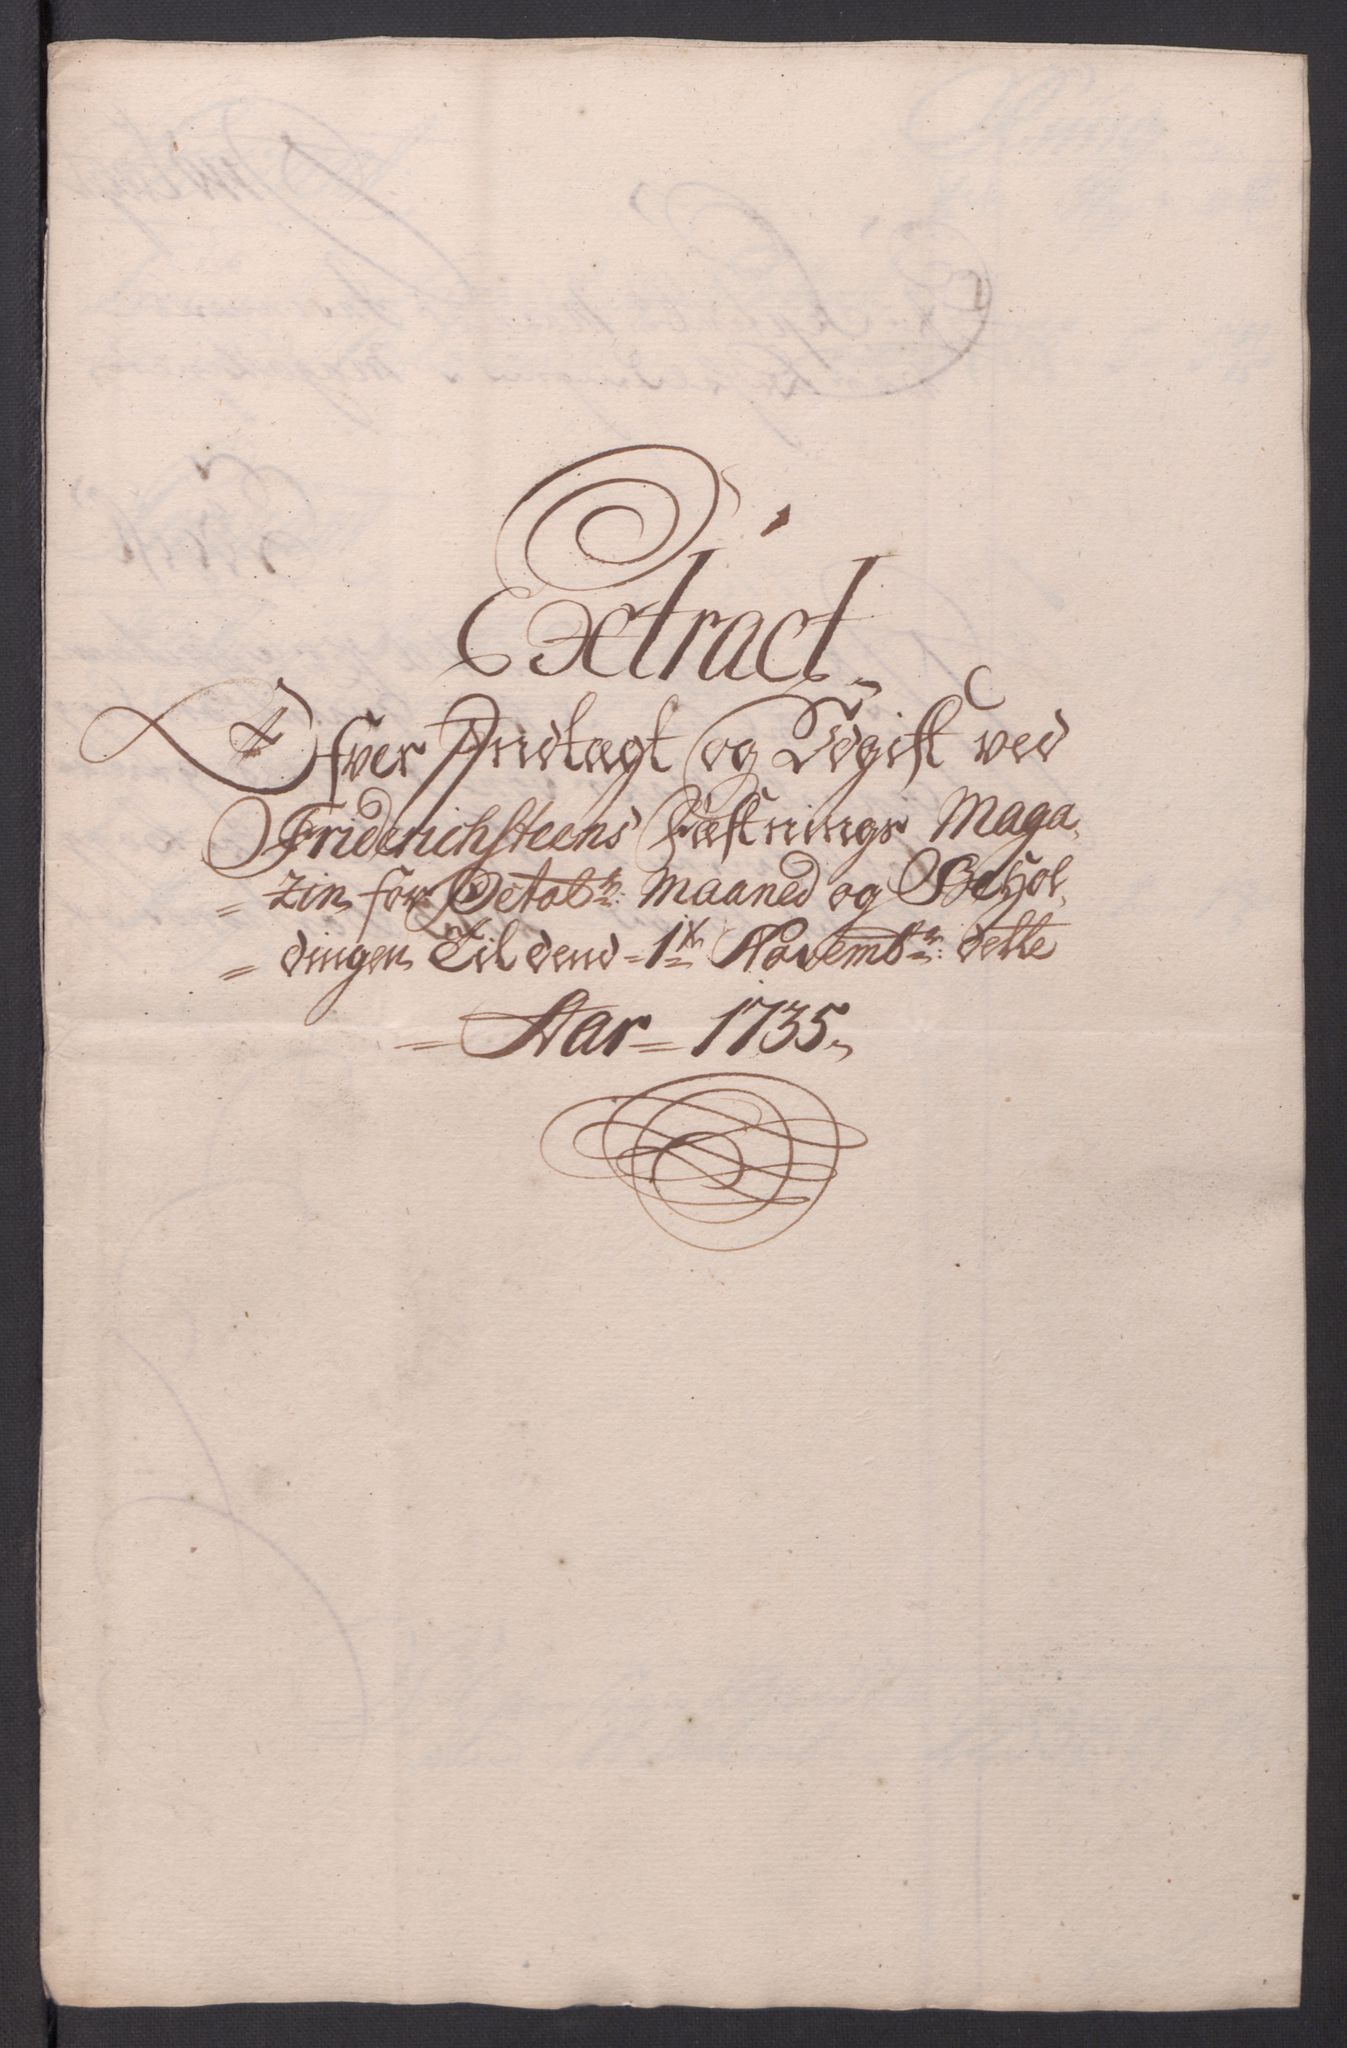 Extract
Ofver Indtægt og Udgift ved
Friderichsteens Fæstnings Maga-
zin for Octobr: Maaned og Behol-
dingen Til dend 1te Novembr: dette
Aar 1735